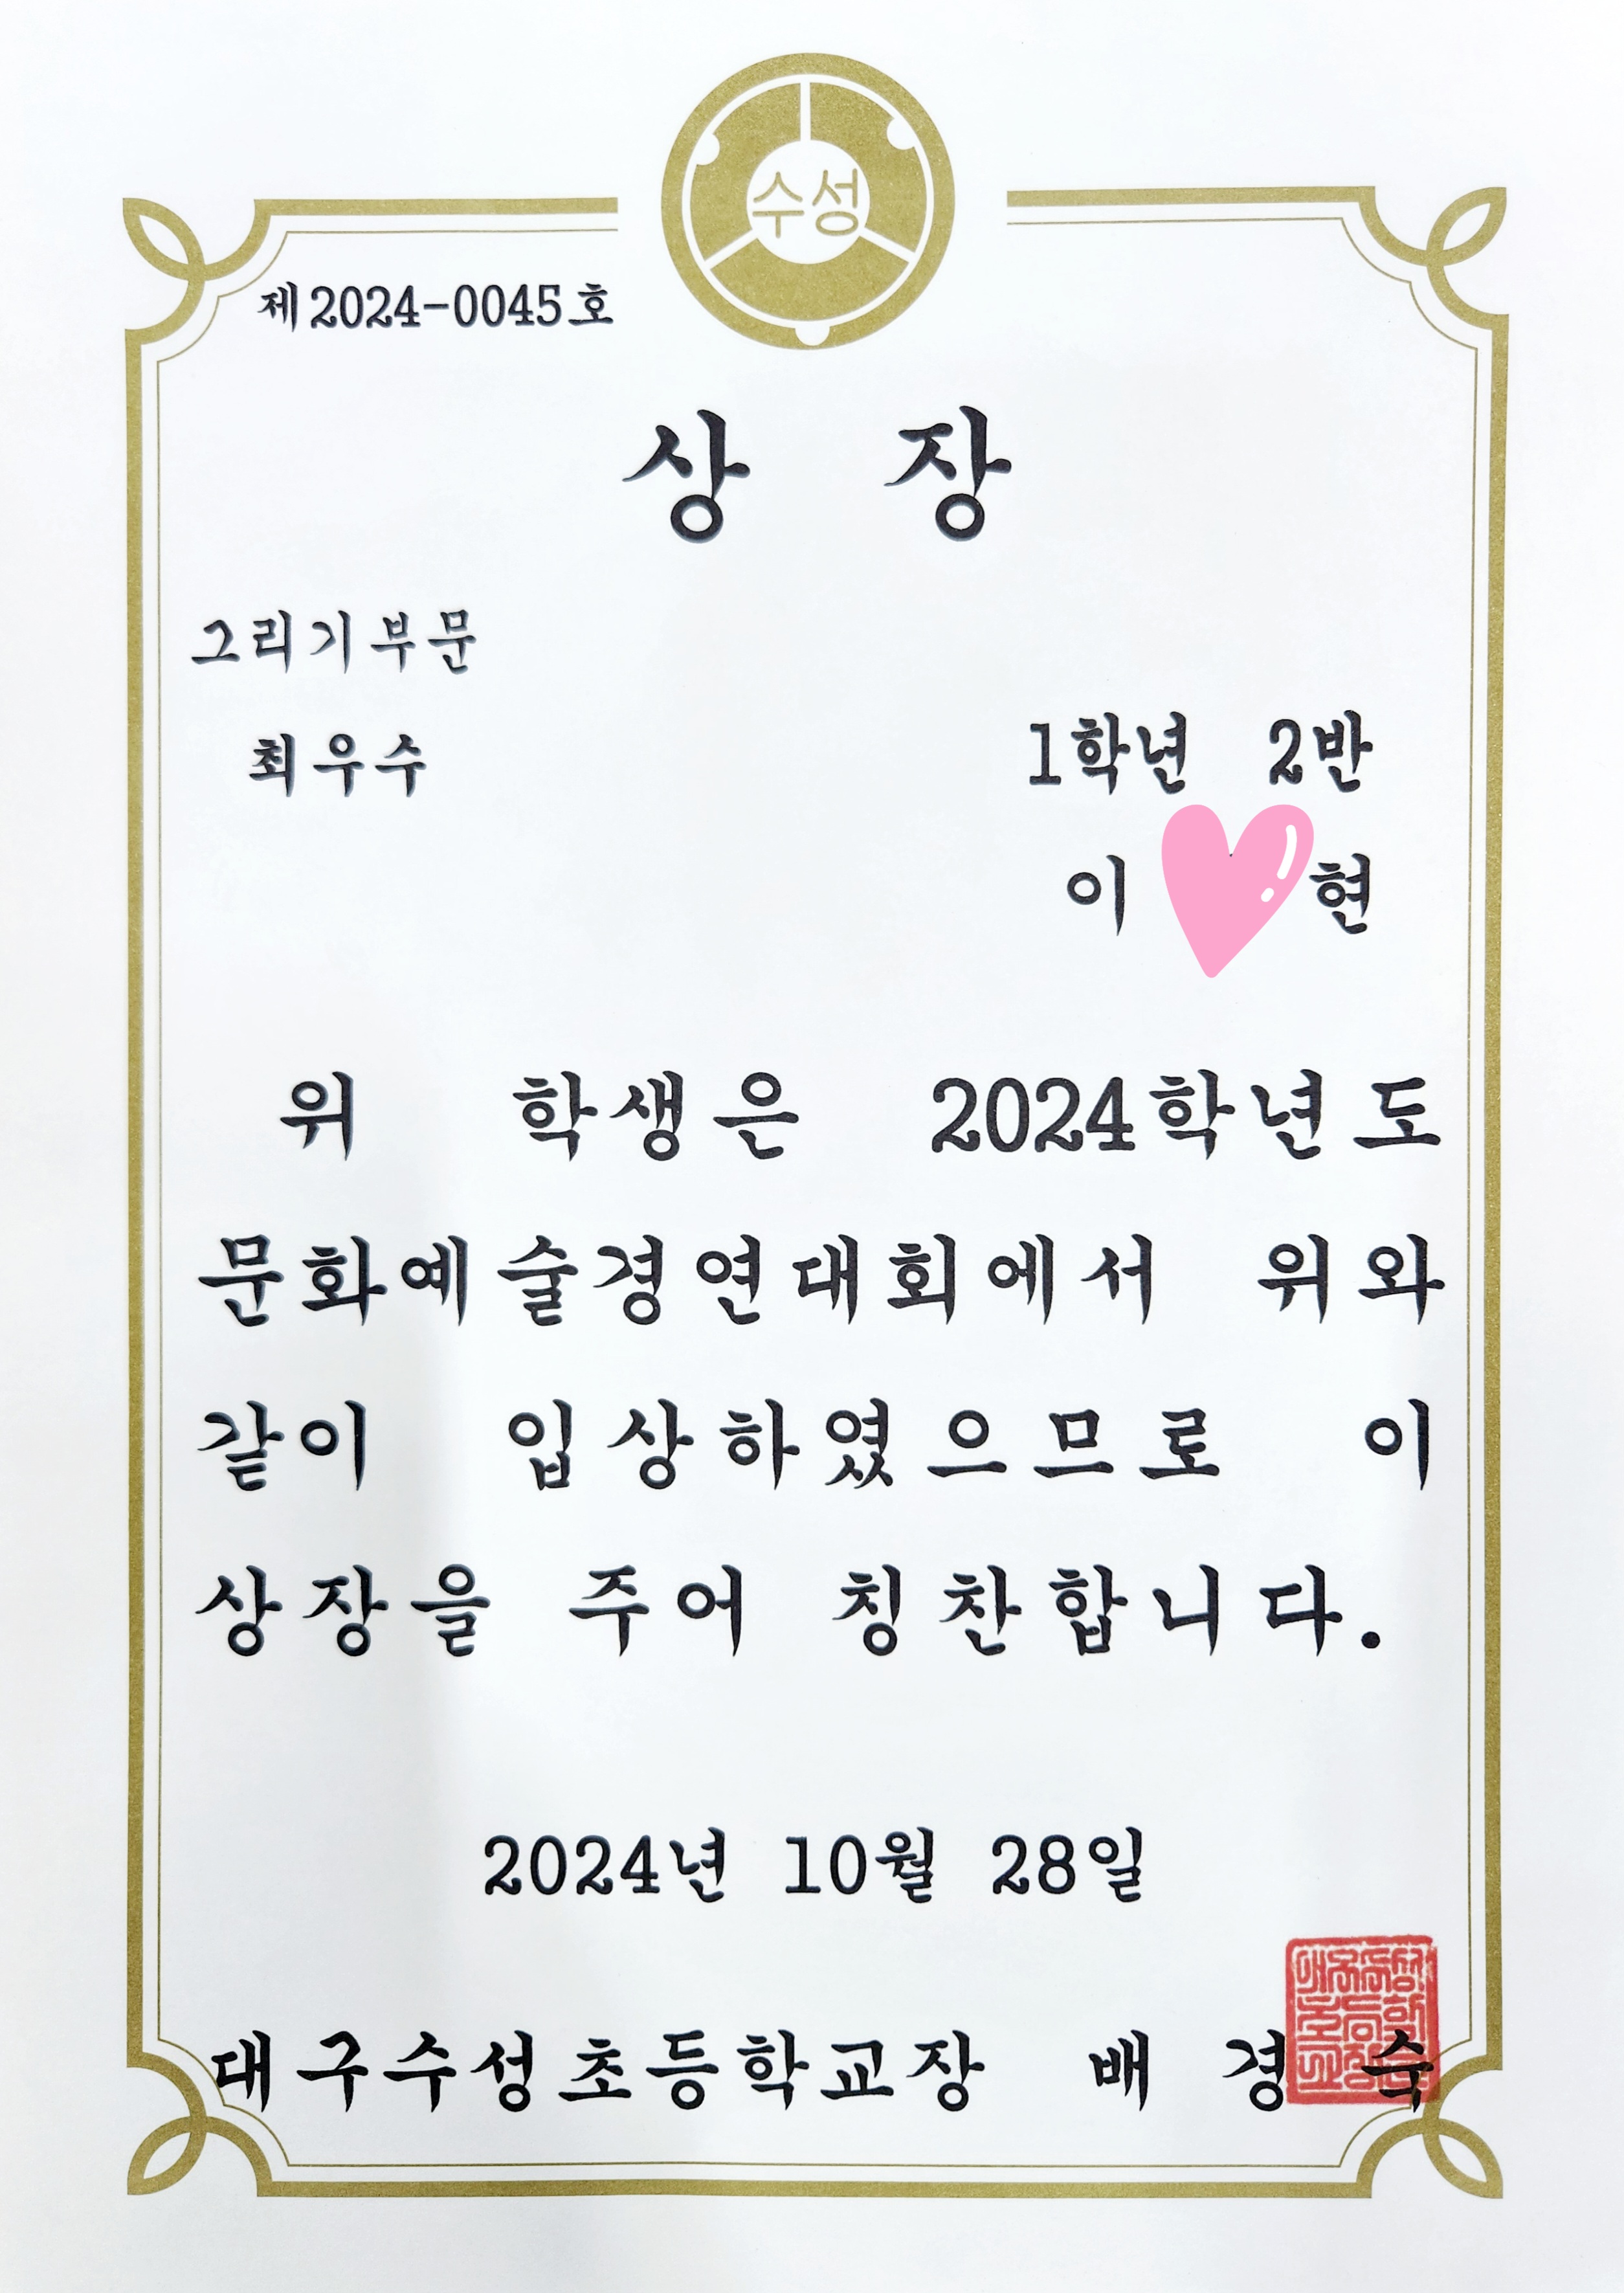 수성
제2024-0045호
상 장
그리기부문
최우수
1학년 2반
이 현
위 학생은 2024학년도
문화예술경연대회에서 위와
같이 입상하였으므로 이
상장을 주어 칭찬합니다.
2024년 10월 28일
대구수성초등학교장 배 경 숙